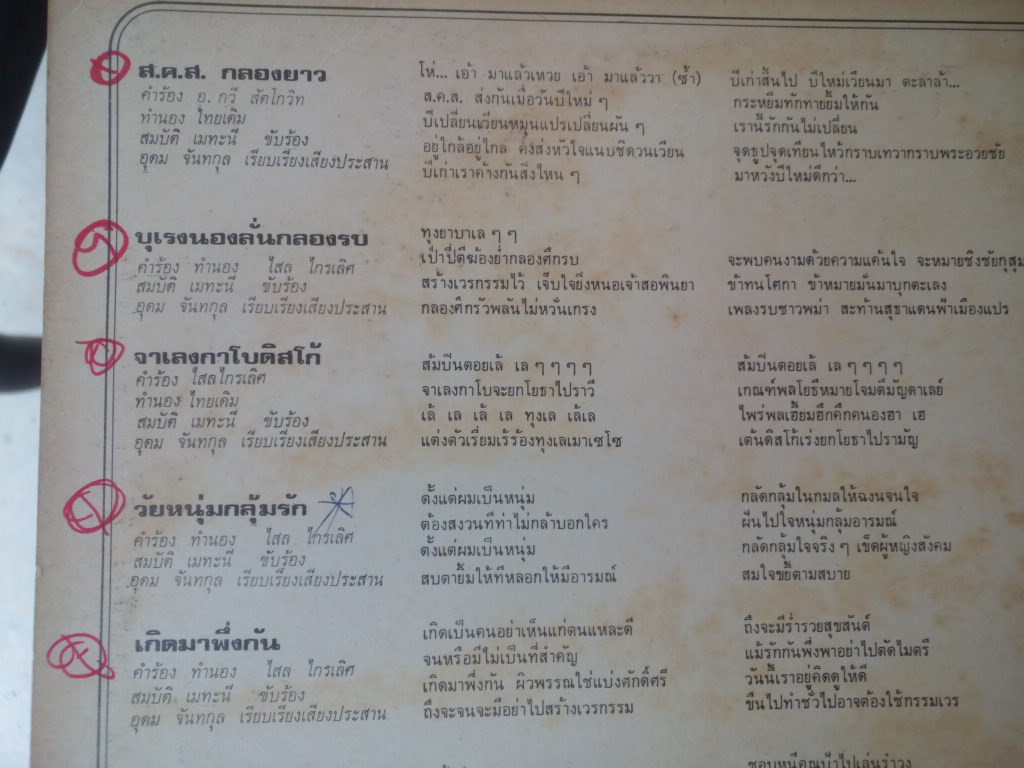 ส.ค.ส. กลองยาว
คำร้อง อ. กวี สัตโกวิท
ทำนอง ไทยเดิม
สมบัติ เมทะนี ขับร้อง
อุดม จันทกุล เรียบเรียงเสียงประสาน
โห่... เอ้า มาแล้วเหวย เอ้า มาแล้ววา (ซ้ำ)
ส.ค.ส. ส่งกันเมื่อวันปีใหม่ ๆ
ปีเปลี่ยนเวียนหมุนแปรเปลี่ยนผัน ๆ
อยู่ใกล้อยู่ไกล คิ่งส่งหัวใจแนบชิดวนเวียน
ปีเก่าเราค้างกันสิ่งไหน ๆ
ปีเก่าสิ้นไป ปีใหม่เวียนมา ตะลาล้า...
กระหยิ่มทักทายยิ้มให้กัน
เรานี้รักกันไม่เปลี่ยน
จุดธูปจุดเทียนไหว้กราบเทวากราบพระอวยชัย
มาหวังปีใหม่ดีกว่า...
บุเรงนองลั่นกลองรบ
คำร้อง ทำนอง ไสล ไกรเลิศ
สมบัติ เมทะนี ขับร้อง
อุดม จันทกุล เรียบเรียงเสียงประสาน
ทุงยาบาเล ๆ ๆ
เป่าปี่ตีฆ้องย่ำกลองศึกรบ
สร้างเวรกรรมไว้ เจ็บใจยิ่งหนอเจ้าสอพินยา
กลองศึกรัวพลันไม่หวั่นเกรง
จะพบคนงามด้วยความแค้นใจ จะหมายชิงชัยกุสุม
ข้าทนโศกา ข้าหมายมั่นมาบุกตะเลง
เพลงรบชาวพม่า สะท้านสุธาแดนฟ้าเมืองแปร
จาเลงกาโบดิสโก้
คำร้อง ไสลไกรเลิศ
ทำนอง ไทยเดิม
สมบัติ เมทะนี ขับร้อง
อุดม จันทกุล เรียบเรียงเสียงประสาน
ส้มปีนตอยเล้ เล ๆ ๆ ๆ ๆ
จาเลงกาโบจะยกโยธาไปราวี
เล้ เล เล้ เล ทุงเล เล้เล
แต่งตัวเรี่ยมเร้ร้องทุงเลเมาเซโซ
ส้มปีนตอยเล้ เล ๆ ๆ ๆ ๆ
เกณฑ์พลโยธีหมายโจมตีมัญดาเลย์
ไพร่พลเฮี้ยมฮึกคึกคนองฮา เฮ
เต้นดิสโก้เร่งยกโยธาไปรามัญ
วัยหนุ่มกลุ้มรัก
คำร้อง ทำนอง ไสล ไกรเลิศ
สมบัติ เมทะนี ขับร้อง
อุดม จันทกุล เรียบเรียงเสียงประสาน
ตั้งแต่ผมเป็นหนุ่ม
ต้องสงวนทีท่าไม่กล้าบอกใคร
ตั้งแต่ผมเป็นหนุ่ม
สบตายิ้มให้ทีหลอกให้มีอารมณ์
กลัดกลุ้มในกมลให้ฉงนจนใจ
ฝืนไปใจหนุ่มกลุ้มอารมณ์
กลัดกลุ้มใจจริง ๆ เข็ดผู้หญิงสังคม
สมใจขยี้ตามสบาย
เกิดมาพึ่งกัน
คำร้อง ทำนอง ไสล ไกรเลิศ
สมบัติ เมทะนี ขับร้อง
อุดม จันทกุล เรียบเรียงเสียงประสาน
เกิดเป็นคนอย่าเห็นแก่ตนแหละดี
จนหรือมีไม่เป็นที่สำคัญ
เกิดมาพึ่งกัน ผิวพรรณใช่แบ่งศักดิ์ศรี
ถึงจะจนจะมีอย่าไปสร้างเวรกรรม
ถึงจะมีร่ำรวยสุขสันต์
แม้รักกันพึ่งพาอย่าไปตัดไมตรี
วันนี้เราอยู่คิดดูให้ดี
ขืนไปทำชั่วไปอาจต้องใช้กรรมเวร
ชอบหนีคุณป้าไปเล่นรำวง